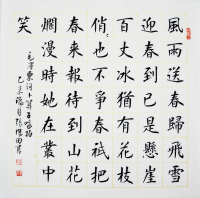 風雨送春歸飛雪
迎春到已是懸崖
百丈冰猶有花枝
俏也不爭春祇把
春來報待到山花
爛漫時她在叢中
笑
毛澤東詞卜算子詠梅